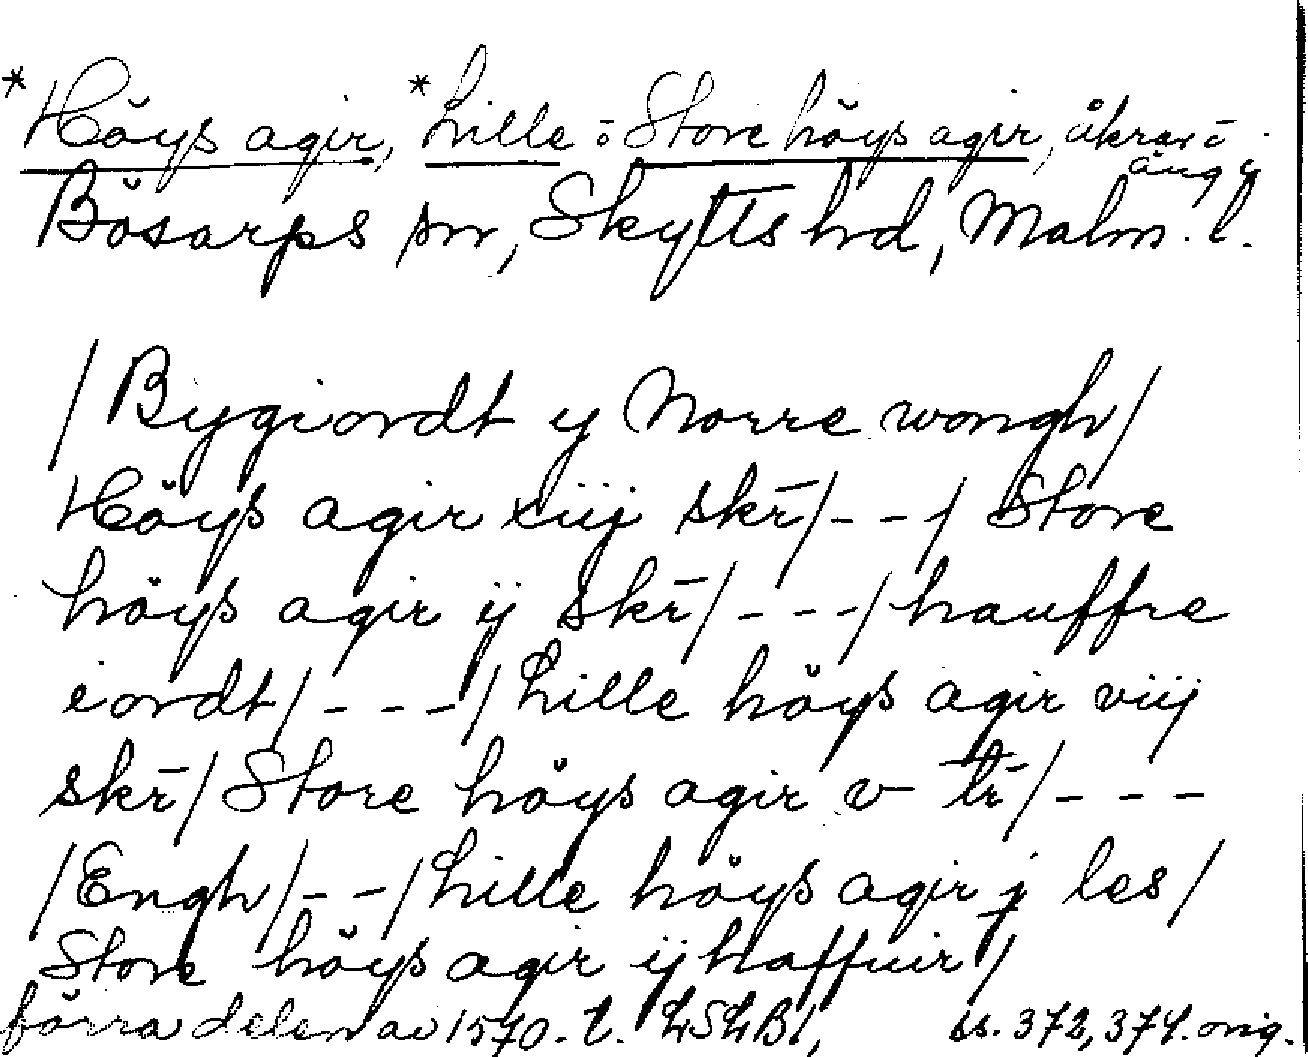 *Höys agir, *Lille o Store höys agir, åkrar o
äng i
Bösarps sn, Skytts hd, Malm. l.
/Bygiordt y Norre wongh/
Höys agir xiij skr̄/- - -/ Store
höys agir ij skr̄/- - -/hauffre
iordt/- - -/Lille höys agir viij
skr̄/Store höys agir v tr̄/- - -
/Engh/- - -/Lille höys agir j les/
Store höys agir ij haffuir/
förra delen av 1570-t. LSLB1, ss. 372, 374. orig.